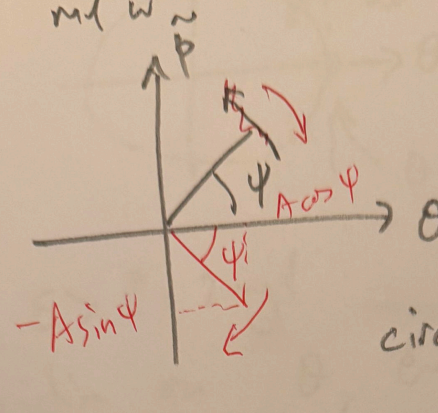 ml w
p̃
ψ
A cos ψ
θ
ψ
- A sin ψ
circ